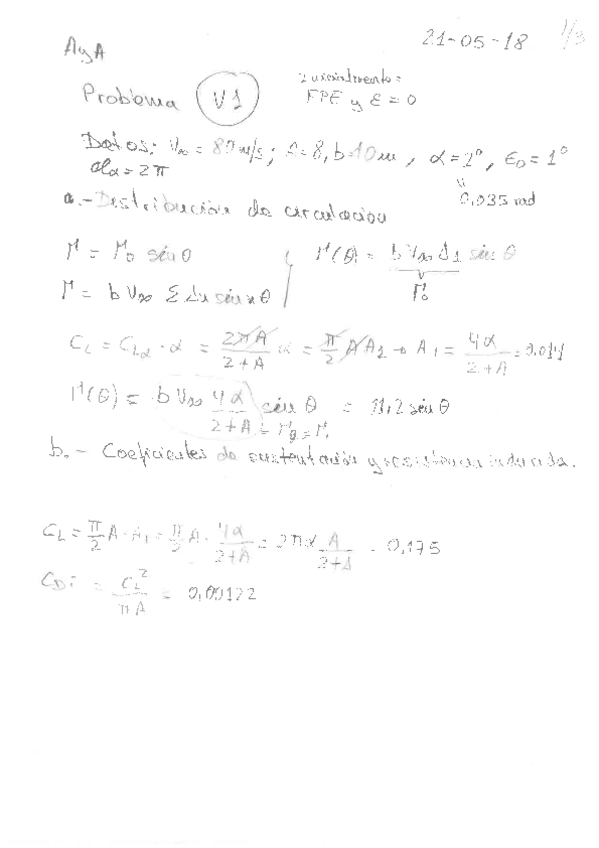 21-05-18 1/3
AyA
Problema V1
FPE y ε = 0
Datos: V∞ = 80 m/s; A=8, b=10m, α=2°, ε₀=1°
a_lα = 2π
0,035 rad
a.- Distribución de circulación
Γ = Γ₀ sén θ
Γ(θ) = b V∞ A₁ sén θ
Γ₀
Γ = b V∞ Σ An sén n θ
C_L = C_Lα · α = 2πA/(2+A) α = π/2 A A₁ → A₁ = 4α/(2+A) = 0.014
Γ(θ) = b V∞ 4α/(2+A) sén θ = 11,2 sén θ
b.- Coeficientes de sustentación y resistencia inducida.
C_L = π/2 A·A₁ = π/2 A · 4α/(2+A) = 2πα A/(2+A) = 0,175
C_Di = C_L²/(πA) = 0,00122